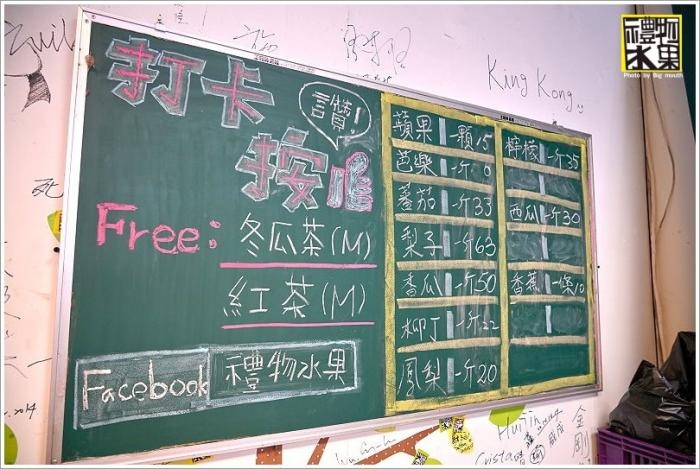 打卡
按
讚!
Free: 冬瓜茶(M)
紅茶(M)
Facebook 禮物水果
蘋果 一顆15
芭樂 一斤 0
蕃茄 一斤33
梨子 一斤63
香瓜 一斤50
柳丁 一斤22
鳳梨 一斤20
檸檬 一斤35
西瓜 一斤30
香蕉 一條10
King Kong
死
禮物
水果
Photo by Big mouth
HuiTin
Crista
金剛